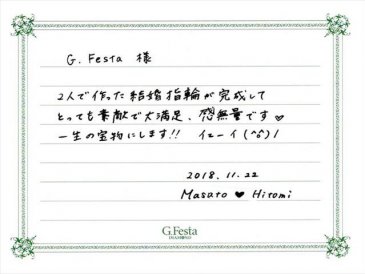 G. Festa 様
2人で作った結婚指輪が完成して
とっても素敵で大満足、感無量です♥
一生の宝物にします!! イェーイ(^o^)/
2018.11.22
Masato ♥ Hitomi
G.Festa
DIAMOND